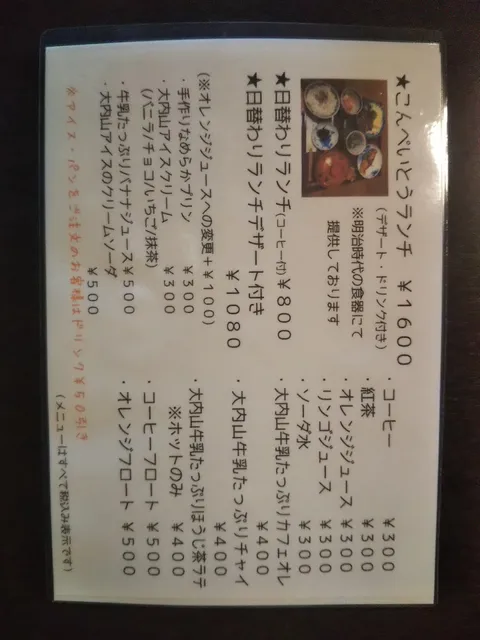 ★こんぺいとうランチ ￥1600
(デザート・ドリンク付き)
※明治時代の食器にて
提供しております
★日替わりランチ(コーヒー付)￥800
★日替わりランチデザート付き
￥1080
(※オレンジジュースへの変更+￥100)
・手作りなめらかプリン ￥300
・大内山アイスクリーム ￥300
(バニラ/チョコ/いちご/抹茶)
・牛乳たっぷりバナナジュース￥500
・大内山アイスのクリームソーダ
￥500
・コーヒー ￥300
・紅茶 ￥300
・オレンジジュース ￥300
・リンゴジュース ￥300
・ソーダ水 ￥300
・大内山牛乳たっぷりカフェオレ
￥400
・大内山牛乳たっぷりチャイ
￥400
・大内山牛乳たっぷりほうじ茶ラテ
※ホットのみ ￥400
・コーヒーフロート ￥500
・オレンジフロート ￥500
※アイス・パンをご注文のお客様はドリンク￥50引き
(メニューはすべて税込み表示です)